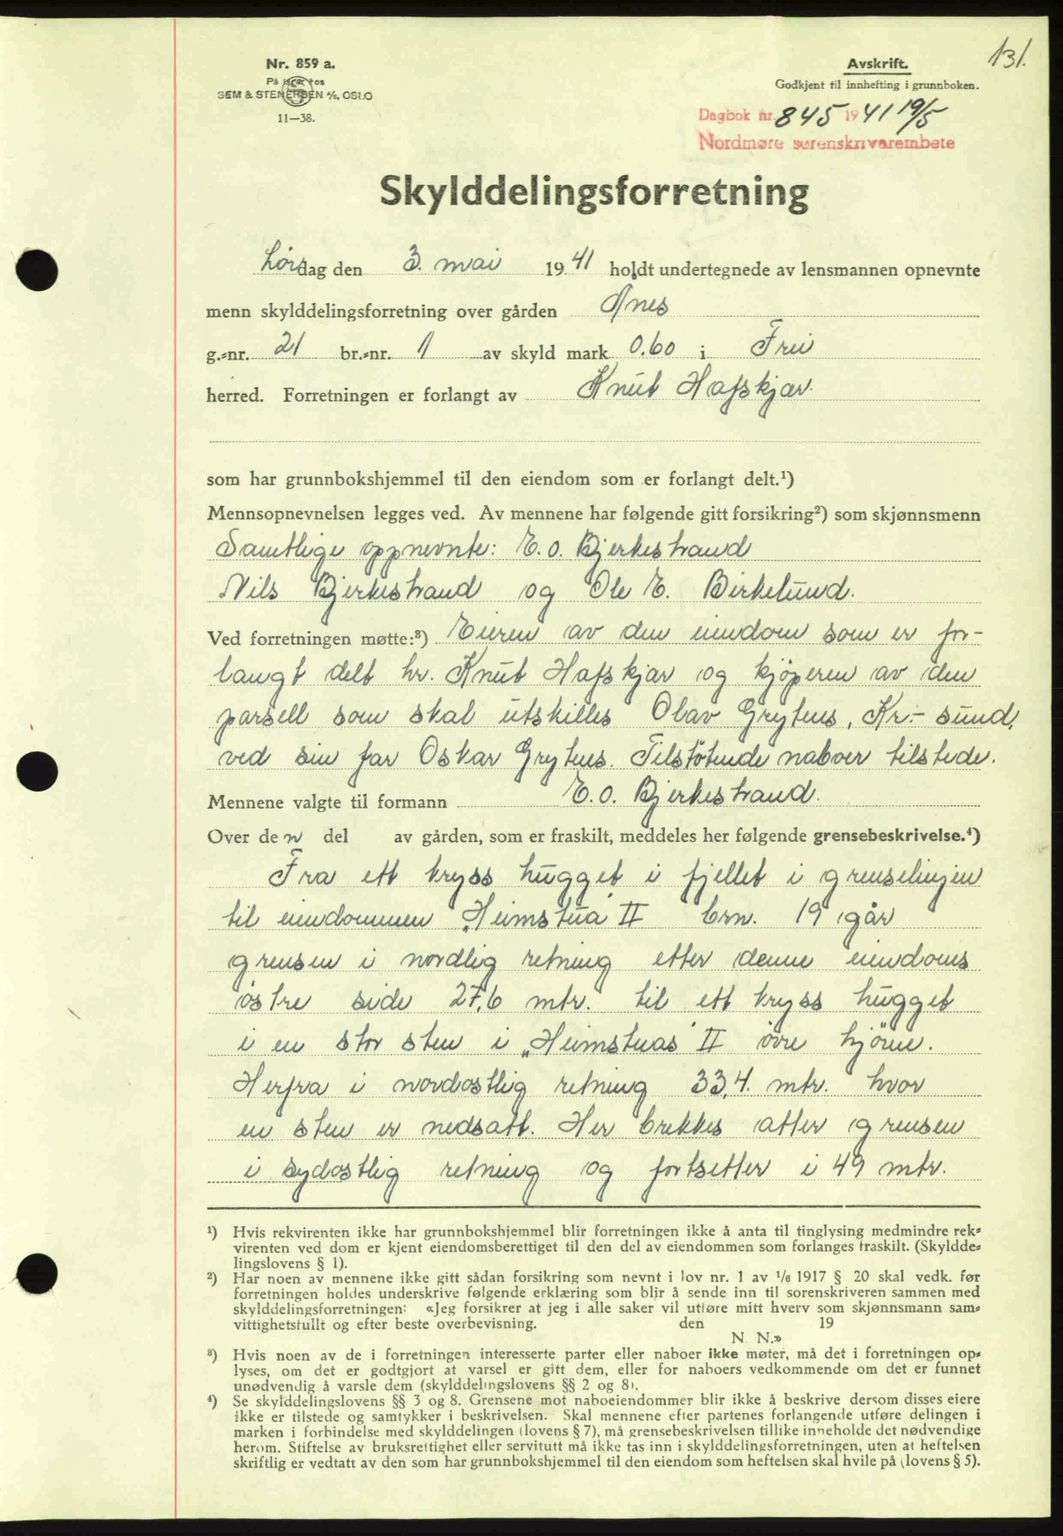 131.
Nr. 859 a.
På lager hos
SEM & STENERSEN A/S, OSLO
11—38.
Avskrift.
Godkjent til innhefting i grunnboken.
Dagbok nr. 845 1941 19/5
Nordmøre sorenskrivarembete
Skylddelingsforretning
Lørdag den 3. mai 1941 holdt undertegnede av lensmannen opnevnte
menn skylddelingsforretning over gården Ønes
g.-nr. 21 br.-nr. 1 av skyld mark 0.60 i Frei
herred. Forretningen er forlangt av Knut Hafskjær.
som har grunnbokshjemmel til den eiendom som er forlangt delt.¹)
Mennsopnevnelsen legges ved. Av mennene har følgende gitt forsikring²) som skjønnsmenn
Samtlige oppnevnte: E. O. Bjerkestrand
Nils Bjerkestrand og Ole E. Birkelund.
Ved forretningen møtte:³) Eieren av den eiendom som er for-
langt delt hr. Knut Hafskjær og kjøperen av den
parsell som skal utskilles Olav Grytnes, Kr.-sund,
ved sin far Oskar Grytnes. Tilstötende naboer tilstede.
Mennene valgte til formann E. O. Bjerkestrand.
Over den del av gården, som er fraskilt, meddeles her følgende grensebeskrivelse.⁴)
Fra ett kryss hugget i fjellet i grenselinjen
til eiendommen „Heimstua" II brn. 19 går
grensen i nordlig retning etter denne eiendoms
östre side 27,6 mtr. til ett kryss hugget
i en stor sten i „Heimstuas" II övre hjörne.
Herfra i nordostlig retning 33,4. mtr. hvor
en sten er nedsatt. Her brekkes atter grensen
i sydostlig retning og fortsetter i 49 mtr.
¹) Hvis rekvirenten ikke har grunnbokshjemmel blir forretningen ikke å anta til tinglysing medmindre rek-
virenten ved dom er kjent eiendomsberettiget til den del av eiendommen som forlanges fraskilt. (Skyldde-
lingslovens § 1).
²) Har noen av mennene ikke gitt sådan forsikring som nevnt i lov nr. 1 av ¹/₆ 1917 § 20 skal vedk. før
forretningen holdes underskrive følgende erklæring som blir å sende inn til sorenskriveren sammen med
skylddelingsforretningen: «Jeg forsikrer at jeg i alle saker vil utføre mitt hverv som skjønnsmann sam-
vittighetsfullt og efter beste overbevisning. den 19
N. N.»
³) Hvis noen av de i forretningen interesserte parter eller naboer ikke møter, må det i forretningen op-
lyses, om det er godtgjort at varsel er gitt dem, eller for naboers vedkommende om det er funnet
unødvendig å varsle dem (skylddelingslovens §§ 2 og 8).
⁴) Se skylddelingslovens §§ 3 og 8. Grensene mot naboeiendommer blir ikke å beskrive dersom disses eiere
ikke er tilstede og samtykker i beskrivelsen. Skal mennene efter partenes forlangende utføre delingen i
marken i forbindelse med skylddelingen (lovens § 7), må grensebeskrivelsen tillike inneholde det nødvendige
herom. Stiftelse av bruksrettighet eller servitutt må ikke tas inn i skylddelingsforretningen, uten at heftelsen
skriftlig er vedtatt av den som har grunnbokshjemmel til den eiendom som heftelsen skal hvile på (lovens § 5).